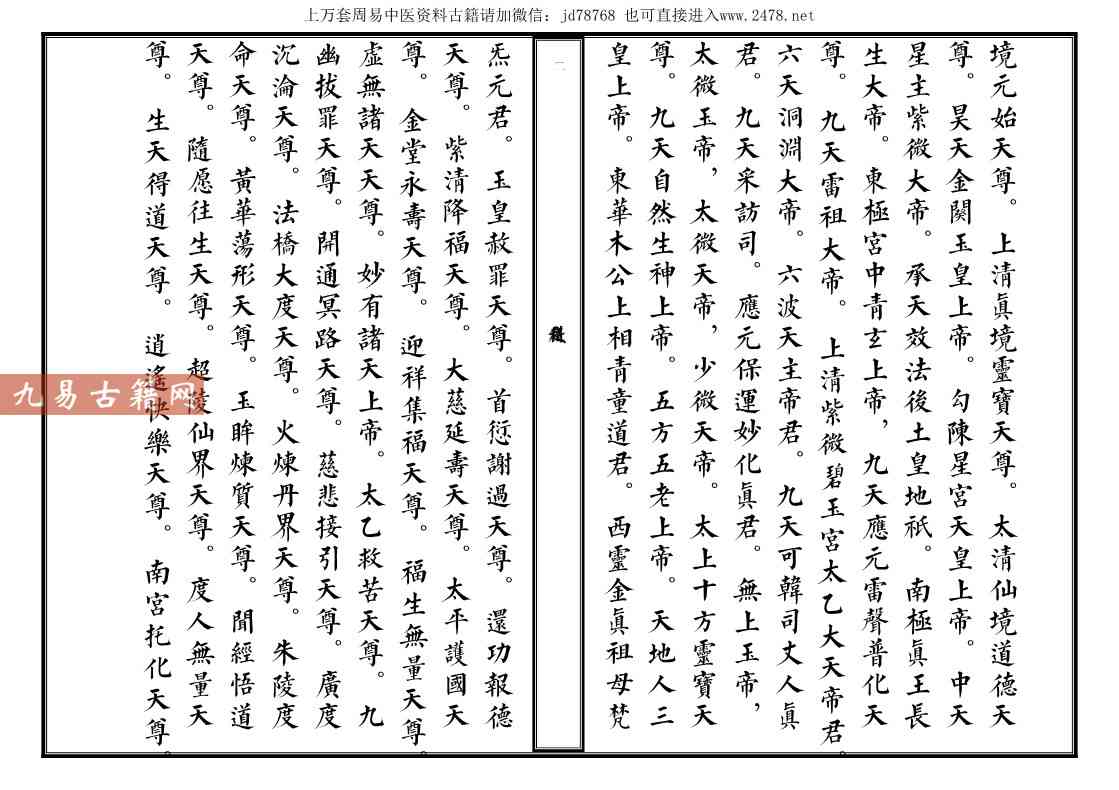 上万套周易中医资料古籍请加微信：jd78768 也可直接进入www.2478.net
境元始天尊。　上清眞境靈寶天尊。　太清仙境道德天
尊。　昊天金闕玉皇上帝。　勾陳星宮天皇上帝。　中天
星主紫微大帝。　承天效法後土皇地祇。　南極眞王長
生大帝。　東極宮中青玄上帝，　九天應元雷聲普化天
尊。　九天雷祖大帝。　上清紫微碧玉宮太乙大天帝君。
六天洞淵大帝。　六波天主帝君。　九天可韓司丈人眞
君。　九天采訪司。　應元保運妙化眞君。　無上玉帝，
太微玉帝，　太微天帝，　少微天帝。　太上十方靈寶天
尊。　九天自然生神上帝。　五方五老上帝。　天地人三
皇上帝。　東華木公上相青童道君。　西靈金眞祖母梵
一
炁元君。　玉皇赦罪天尊。　首愆謝過天尊。　還功報德
天尊。　紫清降福天尊。　大慈延壽天尊。　太平護國天
尊。　金堂永壽天尊。　迎祥集福天尊。　福生無量天尊。
虛無諸天天尊。　妙有諸天上帝。　太乙救苦天尊。　九
幽拔罪天尊。　開通冥路天尊。　慈悲接引天尊。　廣度
沉淪天尊。　法橋大度天尊。　火煉丹界天尊。　朱陵度
命天尊。　黃華蕩形天尊。　玉眸煉質天尊。　聞經悟道
天尊。　隨愿往生天尊。　超陵仙界天尊。　度人無量天
尊。　生天得道天尊。　逍遙快樂天尊。　南宮托化天尊。
九易古籍网